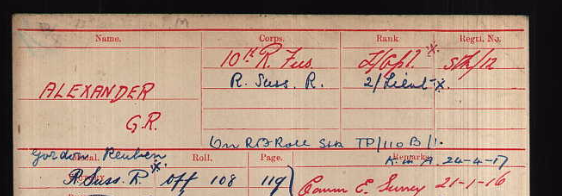 Name. Corps. Rank. Regtl. No.
10th R. Fus. L/Cpl. x. Stk/12
ALEXANDER R. Suss. R. 2/Lieut x.
G.R.
On R&F Roll Stk TP/110 B/1.
Gordon Reuben x. Medal. Roll. Page. Remarks. K. in A. 24-4-17
R. Suss. R. Off 108 119 Comm E. Surrey 21-1-16